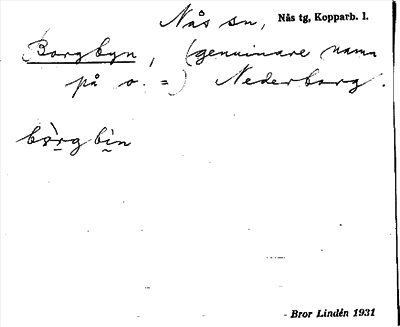 Nås sn, Nås tg, Kopparb. l.
Borgbyn, (genuinare namn
på o. =) Nederborg.
bòrgbìn
- Bror Lindén 1931